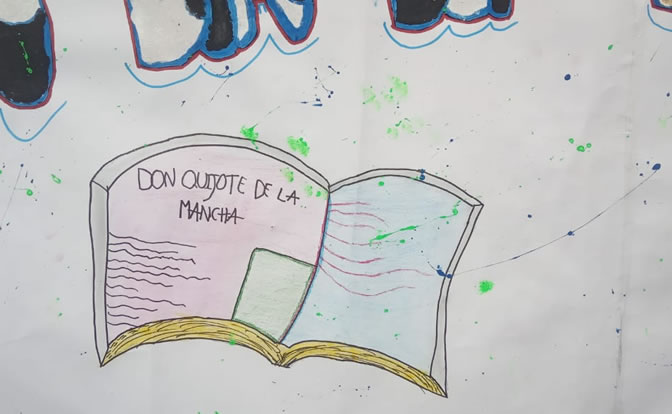 DON QUIJOTE DE LA
MANCHA